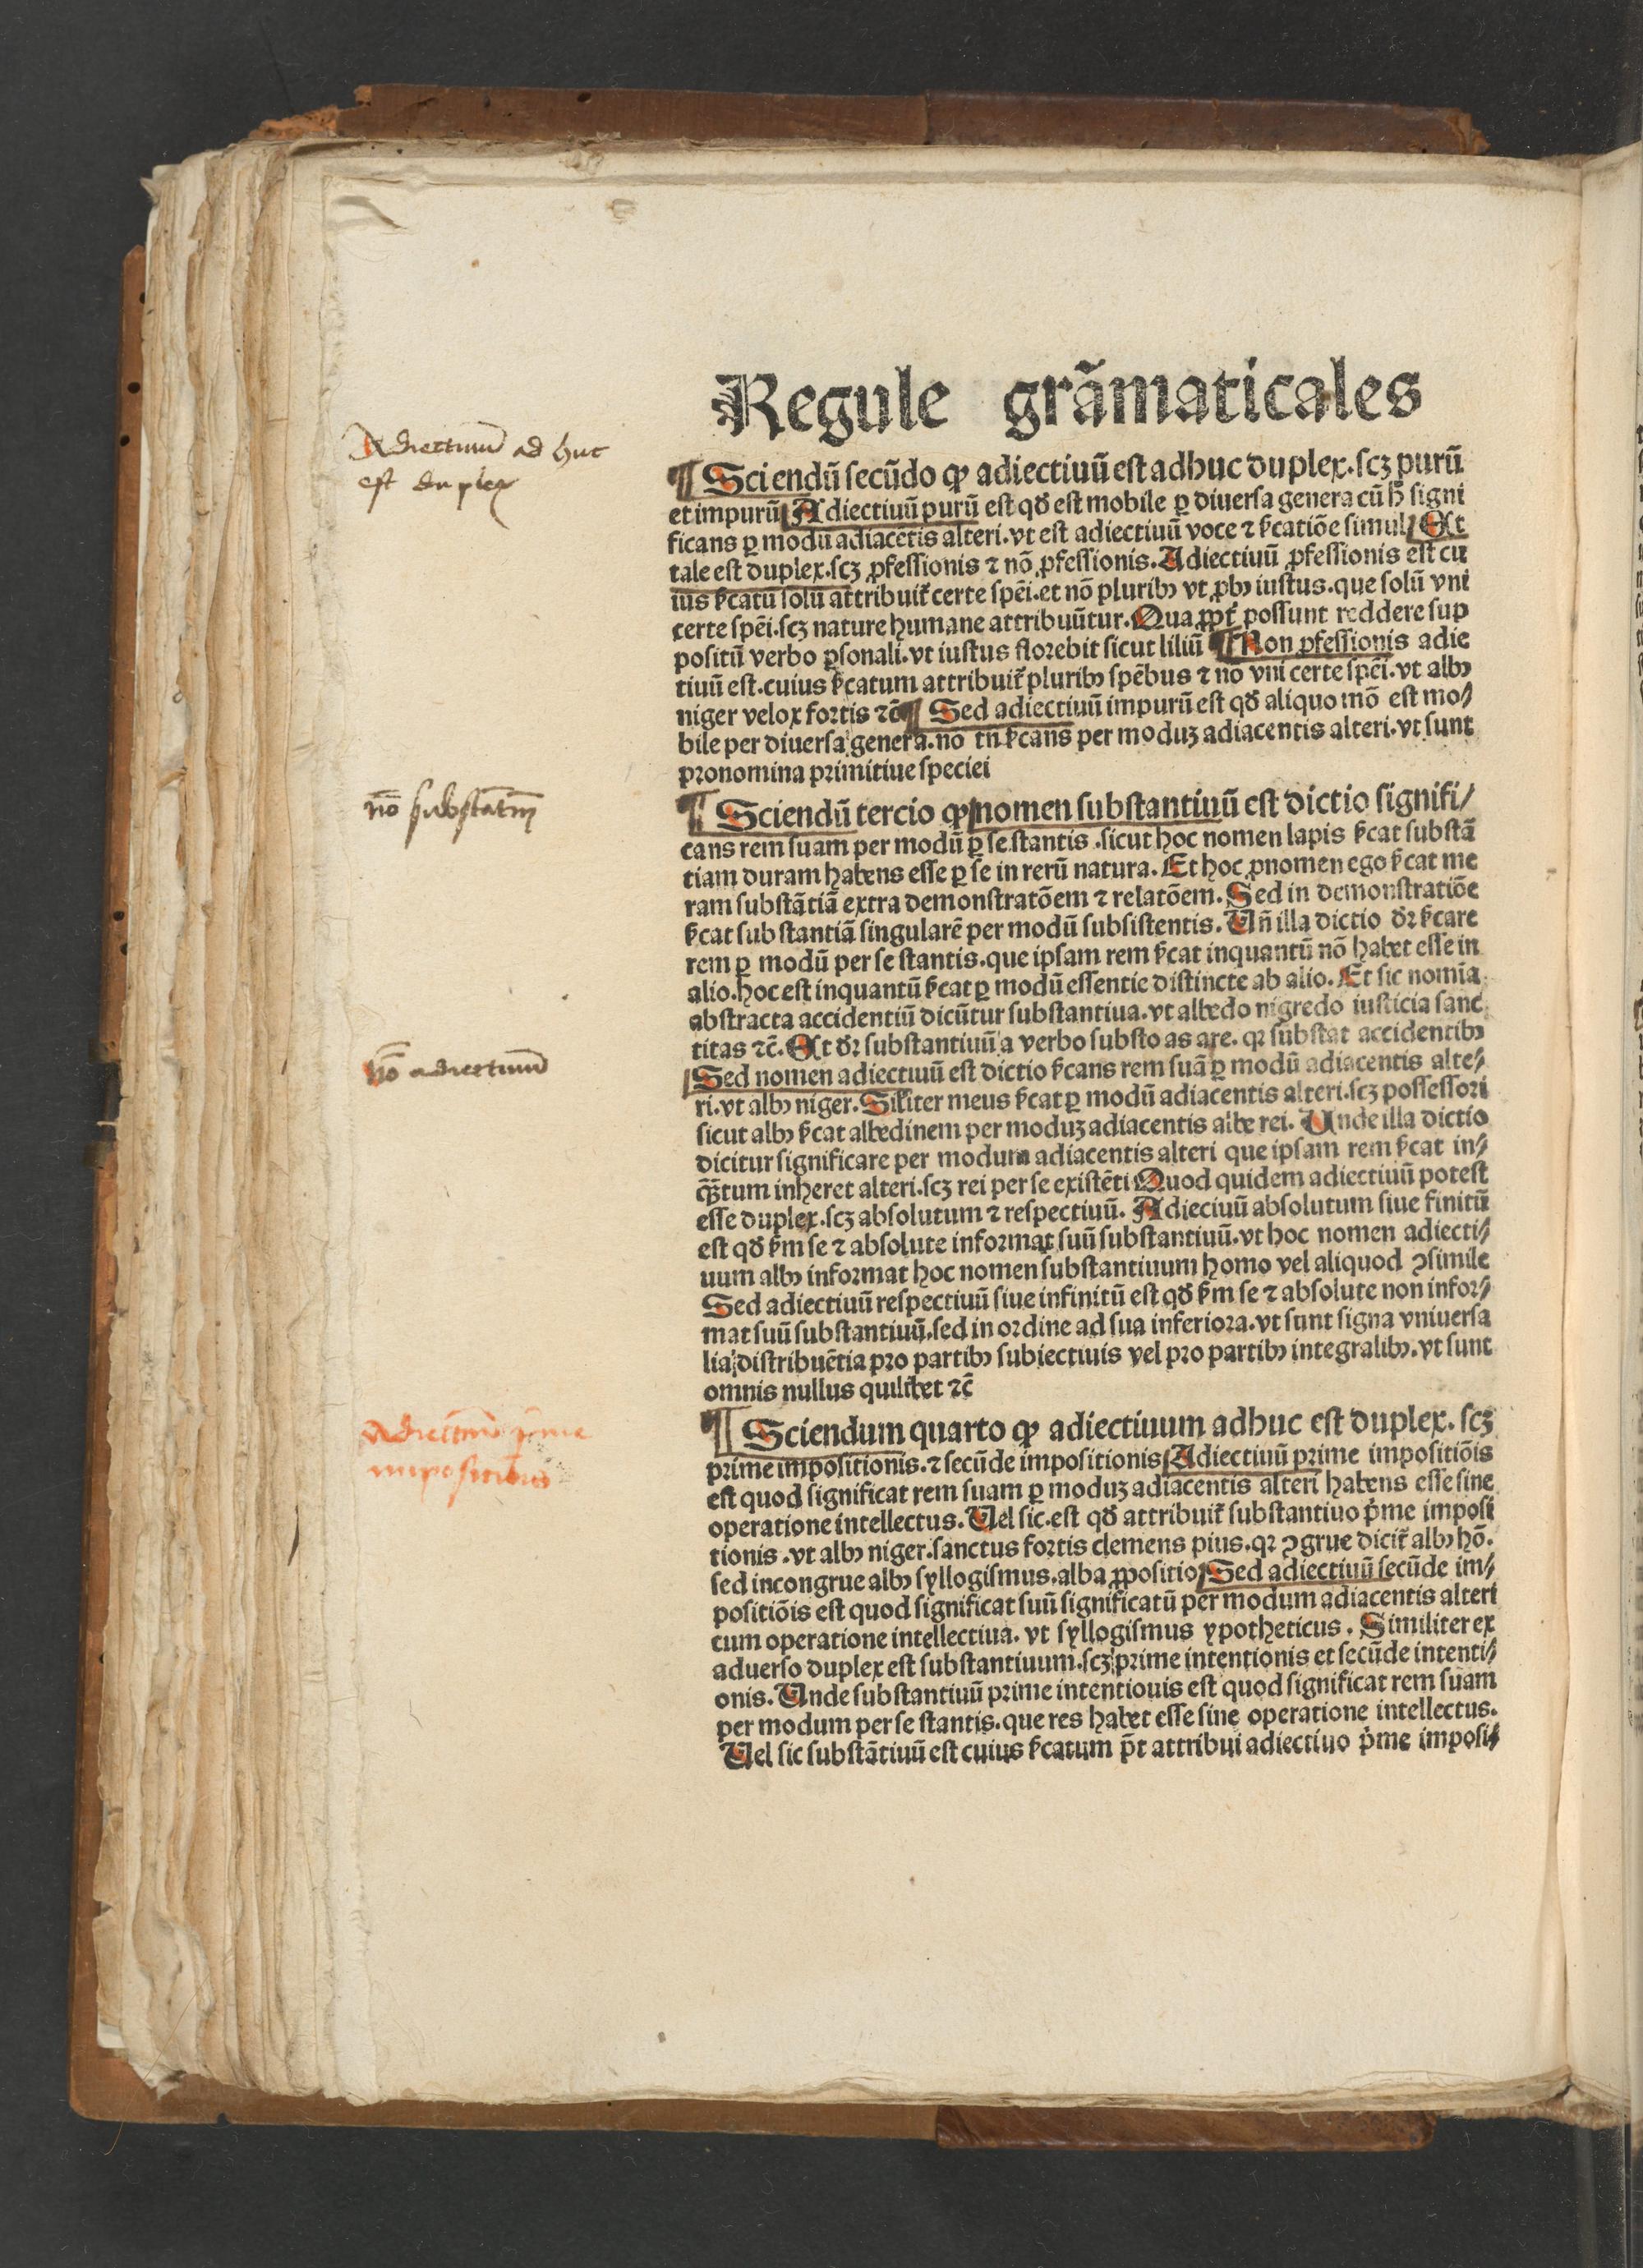 Regule grãmaticales
Adiectiuũ ad huc
est duplex
¶ Sciendũ secũdo ꝙ adiectiuũ est adhuc duplex.scꝫ purũ
et impurũ Adiectiuũ purũ est qđ est mobile ꝑ diuersa genera cũ h̄ signi
ficans ꝑ modũ adiacẽtis alteri.vt est adiectiuũ voce ⁊ ẜcatiõe simul Et
tale est duplex.scꝫ ꝓfessionis ⁊ nõ ꝓfessionis.Adiectiuũ ꝓfessionis est cu
ius ẜcatũ solũ attribuit̃ certe spẽi.et nõ pluribꝰ vt ꝓbꝰ iustus.que solũ vni
certe spẽi.scꝫ nature humane attribuũtur.Quaꝓpt̃ possunt reddere sup
positũ verbo ꝑsonali.vt iustus florebit sicut liliũ ¶ Non ꝓfessionis adie
tiuũ est.cuius ẜcatum attribuit̃ pluribꝰ spẽbus ⁊ nõ vni certe spẽi.vt albꝰ
niger velox fortis ⁊c̃ ¶ Sed adiectiuũ impurũ est qđ aliquo mõ est mo⸗
bile per diuersa genera.nõ tñ ẜcans per moduꝫ adiacentis alteri.vt sunt
pronomina primitiue speciei
nõ substãtiũ
¶ Sciendũ tercio ꝙ nomen substantiuũ est dictio signifi⸗
cans rem suam per modũ ꝑ se stantis .sicut hoc nomen lapis ẜcat substã
tiam duram habens esse ꝑ se in rerũ natura. Et hoc ꝓnomen ego ẜcat me
ram substãtiã extra demonstratõem ⁊ relatõem. Sed in demonstratiõe
ẜcat substantiã singularẽ per modũ subsistentis. Vñ illa dictio dr̃ ẜcare
rem ꝑ modũ per se stantis.que ipsam rem ẜcat inquantũ nõ habet esse in
alio.hoc est inquantũ ẜcat ꝑ modũ essentie distincte ab alio. Et sic nomĩa
abstracta accidentiũ dicũtur substantiua.vt albedo nigredo iusticia sanc
titas ⁊c̃. Et dr̃ substantiuũ a verbo substo as are. qꝛ substat accidentibꝰ
nõ adiectiuũ
Sed nomen adiectiuũ est dictio ẜcans rem suã ꝑ modũ adiacentis alte⸗
ri.vt albꝰ niger. Sil̃iter meus ẜcat ꝑ modũ adiacentis alteri.scꝫ possessori
sicut albꝰ ẜcat albedinem per moduꝫ adiacentis albe rei. Unde illa dictio
dicitur significare per modum adiacentis alteri que ipsam rem ẜcat in⸗
q̃tum inheret alteri.scꝫ rei per se existẽti Quod quidem adiectiuũ potest
esse duplex.scꝫ absolutum ⁊ respectiuũ. Adieciuũ absolutum siue finitũ
est qđ ẜm se ⁊ absolute informat suũ substantiuũ.vt hoc nomen adiecti⸗
uum albꝰ informat hoc nomen substantiuum homo vel aliquod ꝯsimile
Sed adiectiuũ respectiuũ siue infinitũ est qđ ẜm se ⁊ absolute non infor⸗
mat suũ substantiuũ.sed in ordine ad sua inferiora.vt sunt signa vniuersa
lia distribuẽtia pro partibꝰ subiectiuis vel pro partibꝰ integralibꝰ.vt sunt
omnis nullus quilibet ⁊c̃
Adiectiuũ p̃me
impositionis
¶ Sciendum quarto ꝙ adiectiuum adhuc est duplex. scꝫ
prime impositionis.⁊ secũde impositionis Adiectiuũ prime impositiõis
est quod significat rem suam ꝑ moduꝫ adiacentis alteri habens esse sine
operatione intellectus. Uel sic.est qđ attribuit̃ substantiuo p̃me imposi
tionis .vt albꝰ niger.sanctus fortis clemens pius.qꝛ ꝯgrue dicit̃ albꝰ hõ.
sed incongrue albꝰ syllogismus.alba ꝓpositio Sed adiectiuũ secũde im⸗
positiõis est quod significat suũ significatũ per modum adiacentis alteri
cum operatione intellectiua. vt syllogismus ypotheticus . Similiter ex
aduerso duplex est substantiuum.scꝫ prime intentionis et secũde intenti⸗
onis. Unde substantiuũ prime intentiouis est quod significat rem suam
per modum per se stantis.que res habet esse sine operatione intellectus.
Uel sic substãtiuũ est cuius ẜcatum põt attribui adiectiuo p̃me imposi⸗